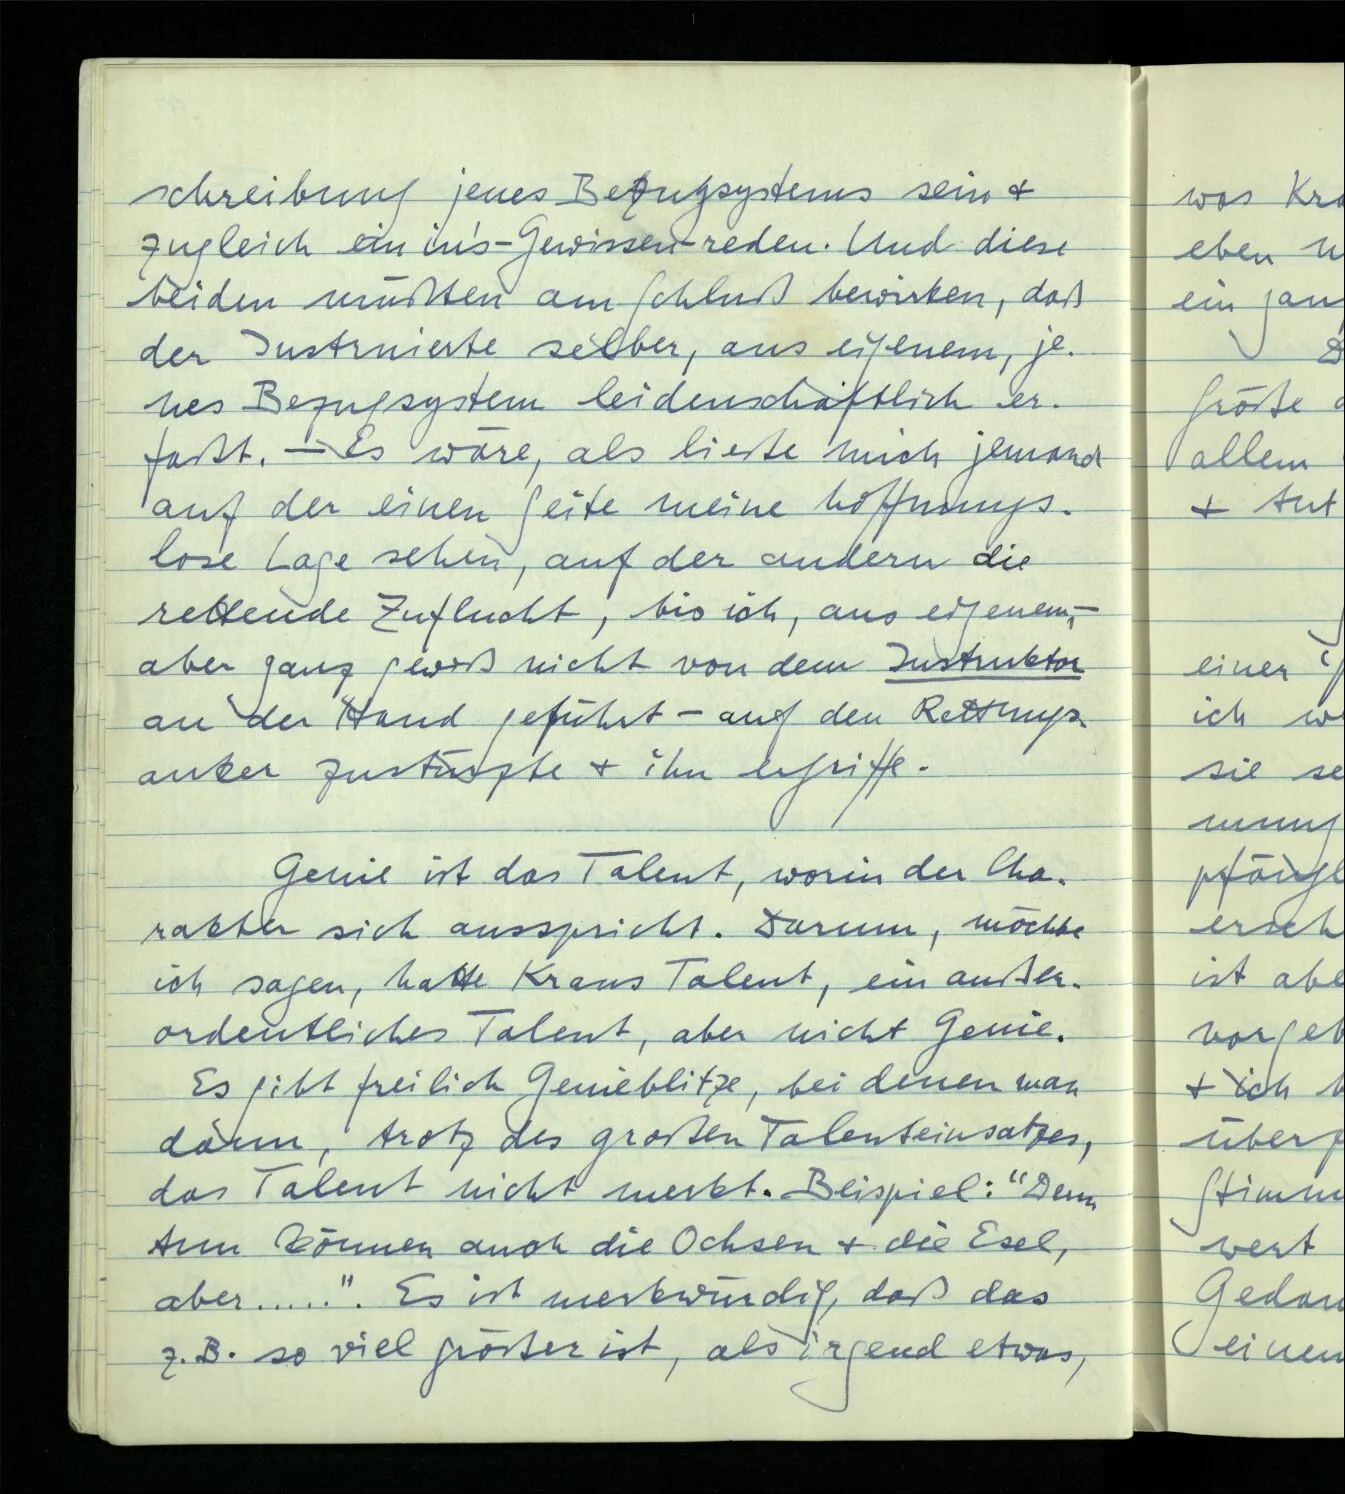 schreibung jenes Bezugsystems sein +
zugleich ein in's-Gewissen-reden. Und diese
beiden müßten am Schluß bewirken, daß
der Instruierte selber, aus eigenem, je-
nes Bezugsystem leidenschaftlich er-
faßt. — Es wäre, als ließe mich jemand
auf der einen Seite meine hoffnungs-
lose Lage sehen, auf der andern die
rettende Zuflucht, bis ich, aus eigenem,—
aber ganz gewiß nicht von dem Instruktor
an der Hand geführt – auf den Rettungs-
anker zustürzte + ihn ergriffe.
Genie ist das Talent, worin der Cha-
rakter sich ausspricht. Darum, möchte
ich sagen, hatte Kraus Talent, ein außer-
ordentliches Talent, aber nicht Genie.
Es gibt freilich Genieblitze, bei denen man
dann, trotz des großen Talenteinsatzes,
das Talent nicht merkt. Beispiel: "Denn
tun können auch die Ochsen + die Esel,
aber.....". Es ist merkwürdig, daß das
z.B. so viel größer ist, als irgend etwas,
was
eben
ein
größe
allem
+
einer
ich
sie
ist
+ ich
wert
einen